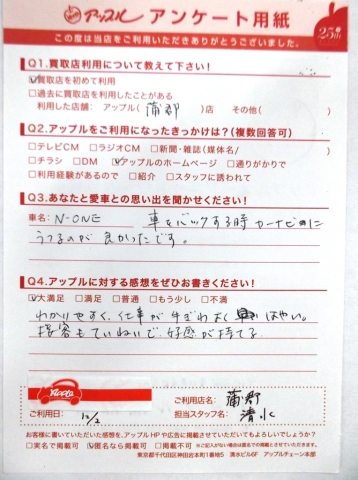 アップル アンケート用紙
25th
この度は当店をご利用いただきありがとうございました。
Q1.買取店利用について教えて下さい!
☑買取店を初めて利用
□過去に買取店を利用したことがある
利用した店舗: アップル( 蒲郡 )店 その他( )
Q2.アップルをご利用になったきっかけは?(複数回答可)
□テレビCM □ラジオCM □新聞・雑誌(媒体名/ )
□チラシ □DM ☑アップルのホームページ □通りがかりで
□利用経験があるので □紹介 □スタッフに誘われて
Q3.あなたと愛車との思い出を聞かせください!
車名: N-ONE 車をバックする時カーナビに
うつるのが良かったです。
Q4.アップルに対する感想をぜひお書きください!
☑大満足 □満足 □普通 □もう少し □不満
わかりやすく、仕事がてぎわよく はやい。
接客もていねいで、好感が持てる
Apple
ご利用日: 12/2
ご利用店名: 蒲郡
担当スタッフ名: 清水
お客様に書いていただいた感想を、アップルHPや広告に掲載させていただいてもよろしいでしょうか?
□実名で掲載可 ☑匿名なら掲載可 □掲載不可 ※ご記入がない場合は匿名での掲載とさせていただきます。
東京都千代田区神田岩本町1番地5 清水ビル6F アップルチェーン本部